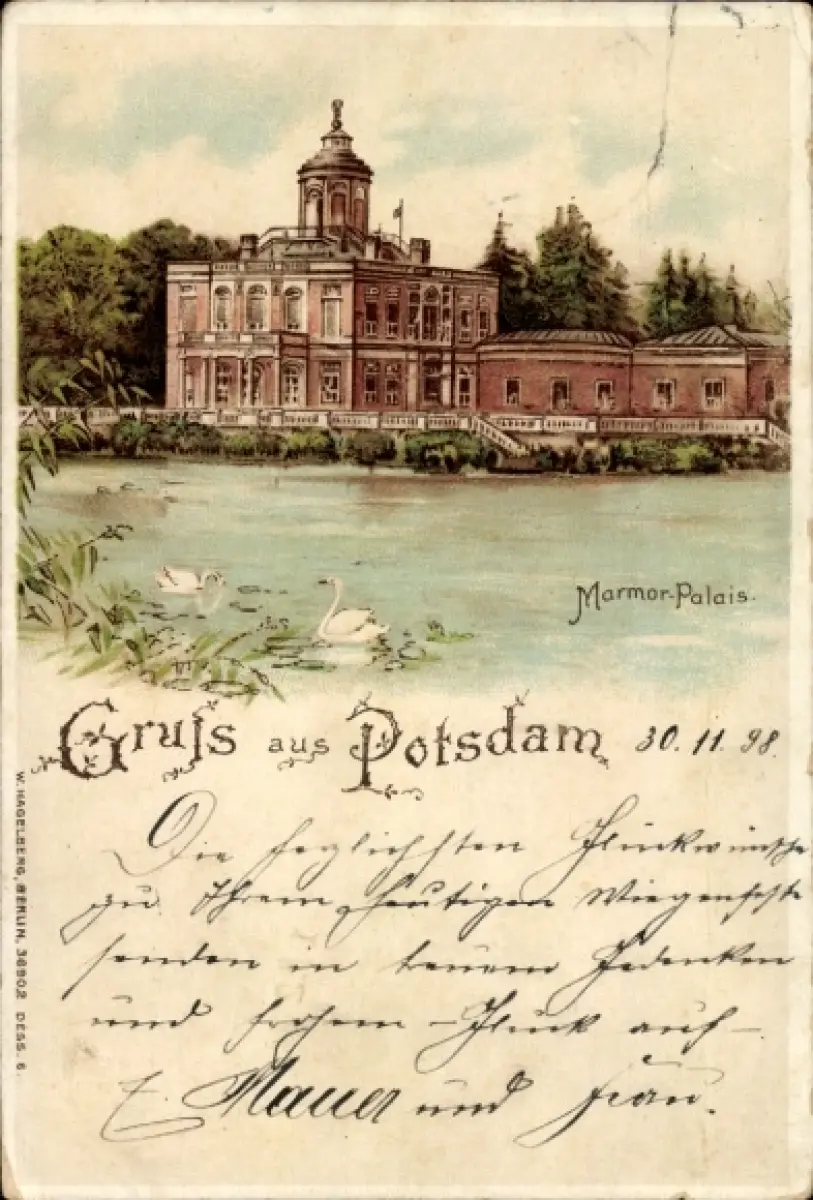 Marmor-Palais.
Gruss aus Potsdam 30.11.98.
Die herzlichsten Glückwünsche
zu Ihrem heutigen Wiegenfeste
senden in treuem Gedenken
und frohem – Glück auf –
E. Mauer und Frau.
W. HAGELBERG, BERLIN, 36902 DESS. 6.